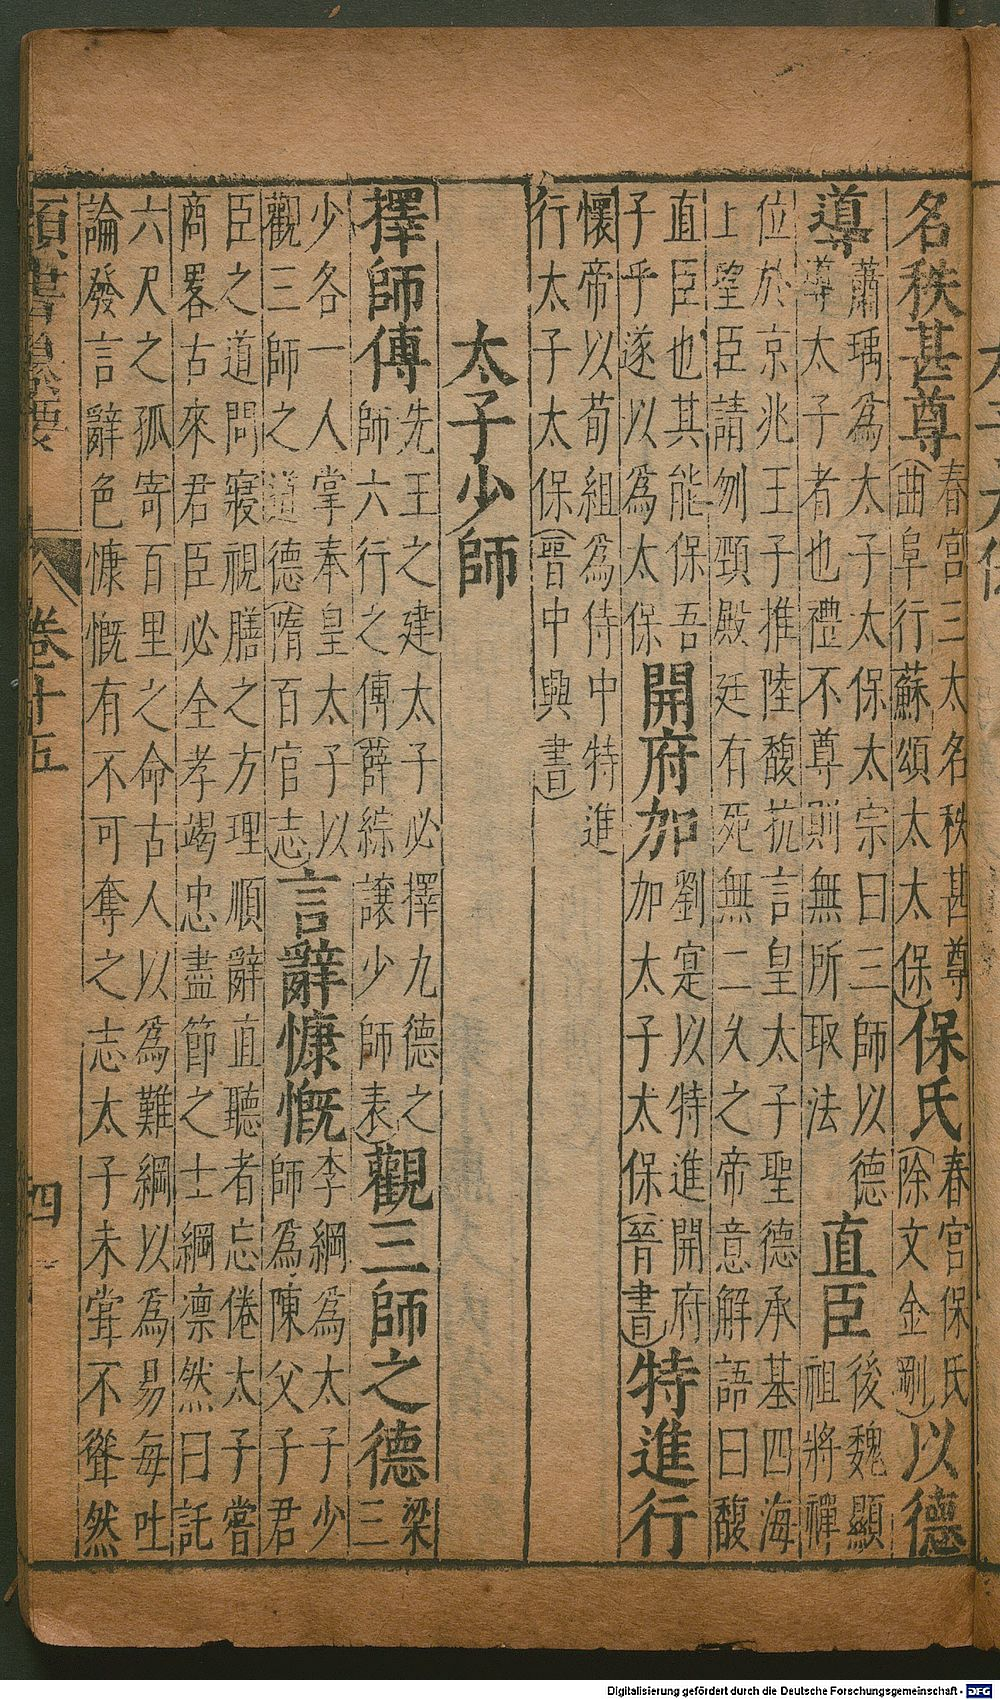 名秩甚尊春宮三太名秩甚尊(曲阜行蘇頌太太保)保氏春宮保氏(除文金剛)以德
導蕭瑀為太子太保太宗曰三師以德導太子者也禮不尊則無所取法直臣後魏顯祖將禪
位於京兆王子推陸馥抗言皇太子聖德承基四海
上望臣請刎頸殿廷有死無二久之帝意解語曰馥
直臣也其能保吾子乎遂以為太保開府加劉寔以特進開府加太子太保(晉書)特進行
懷帝以荀組為侍中特進
行太子太保(晉中興書)
太子少師
擇師傅先王之建太子必擇九德之師六行之傅(薛綜讓少師表)觀三師之德梁三
少各一人掌奉皇太子以觀三師之道德(隋百官志)言辭慷慨李綱為太子少師為陳父子君
臣之道問寢視膳之方理順辭直聽者忘倦太子嘗
商畧古來君臣必全孝竭忠盡節之士綱凛然曰託
六尺之孤寄百里之命古人以為難綱以為易每吐
論發言辭色慷慨有不可奪之志太子未嘗不聳然
類書纂要 卷十五 四
Digitalisierung gefördert durch die Deutsche Forschungsgemeinschaft - DFG